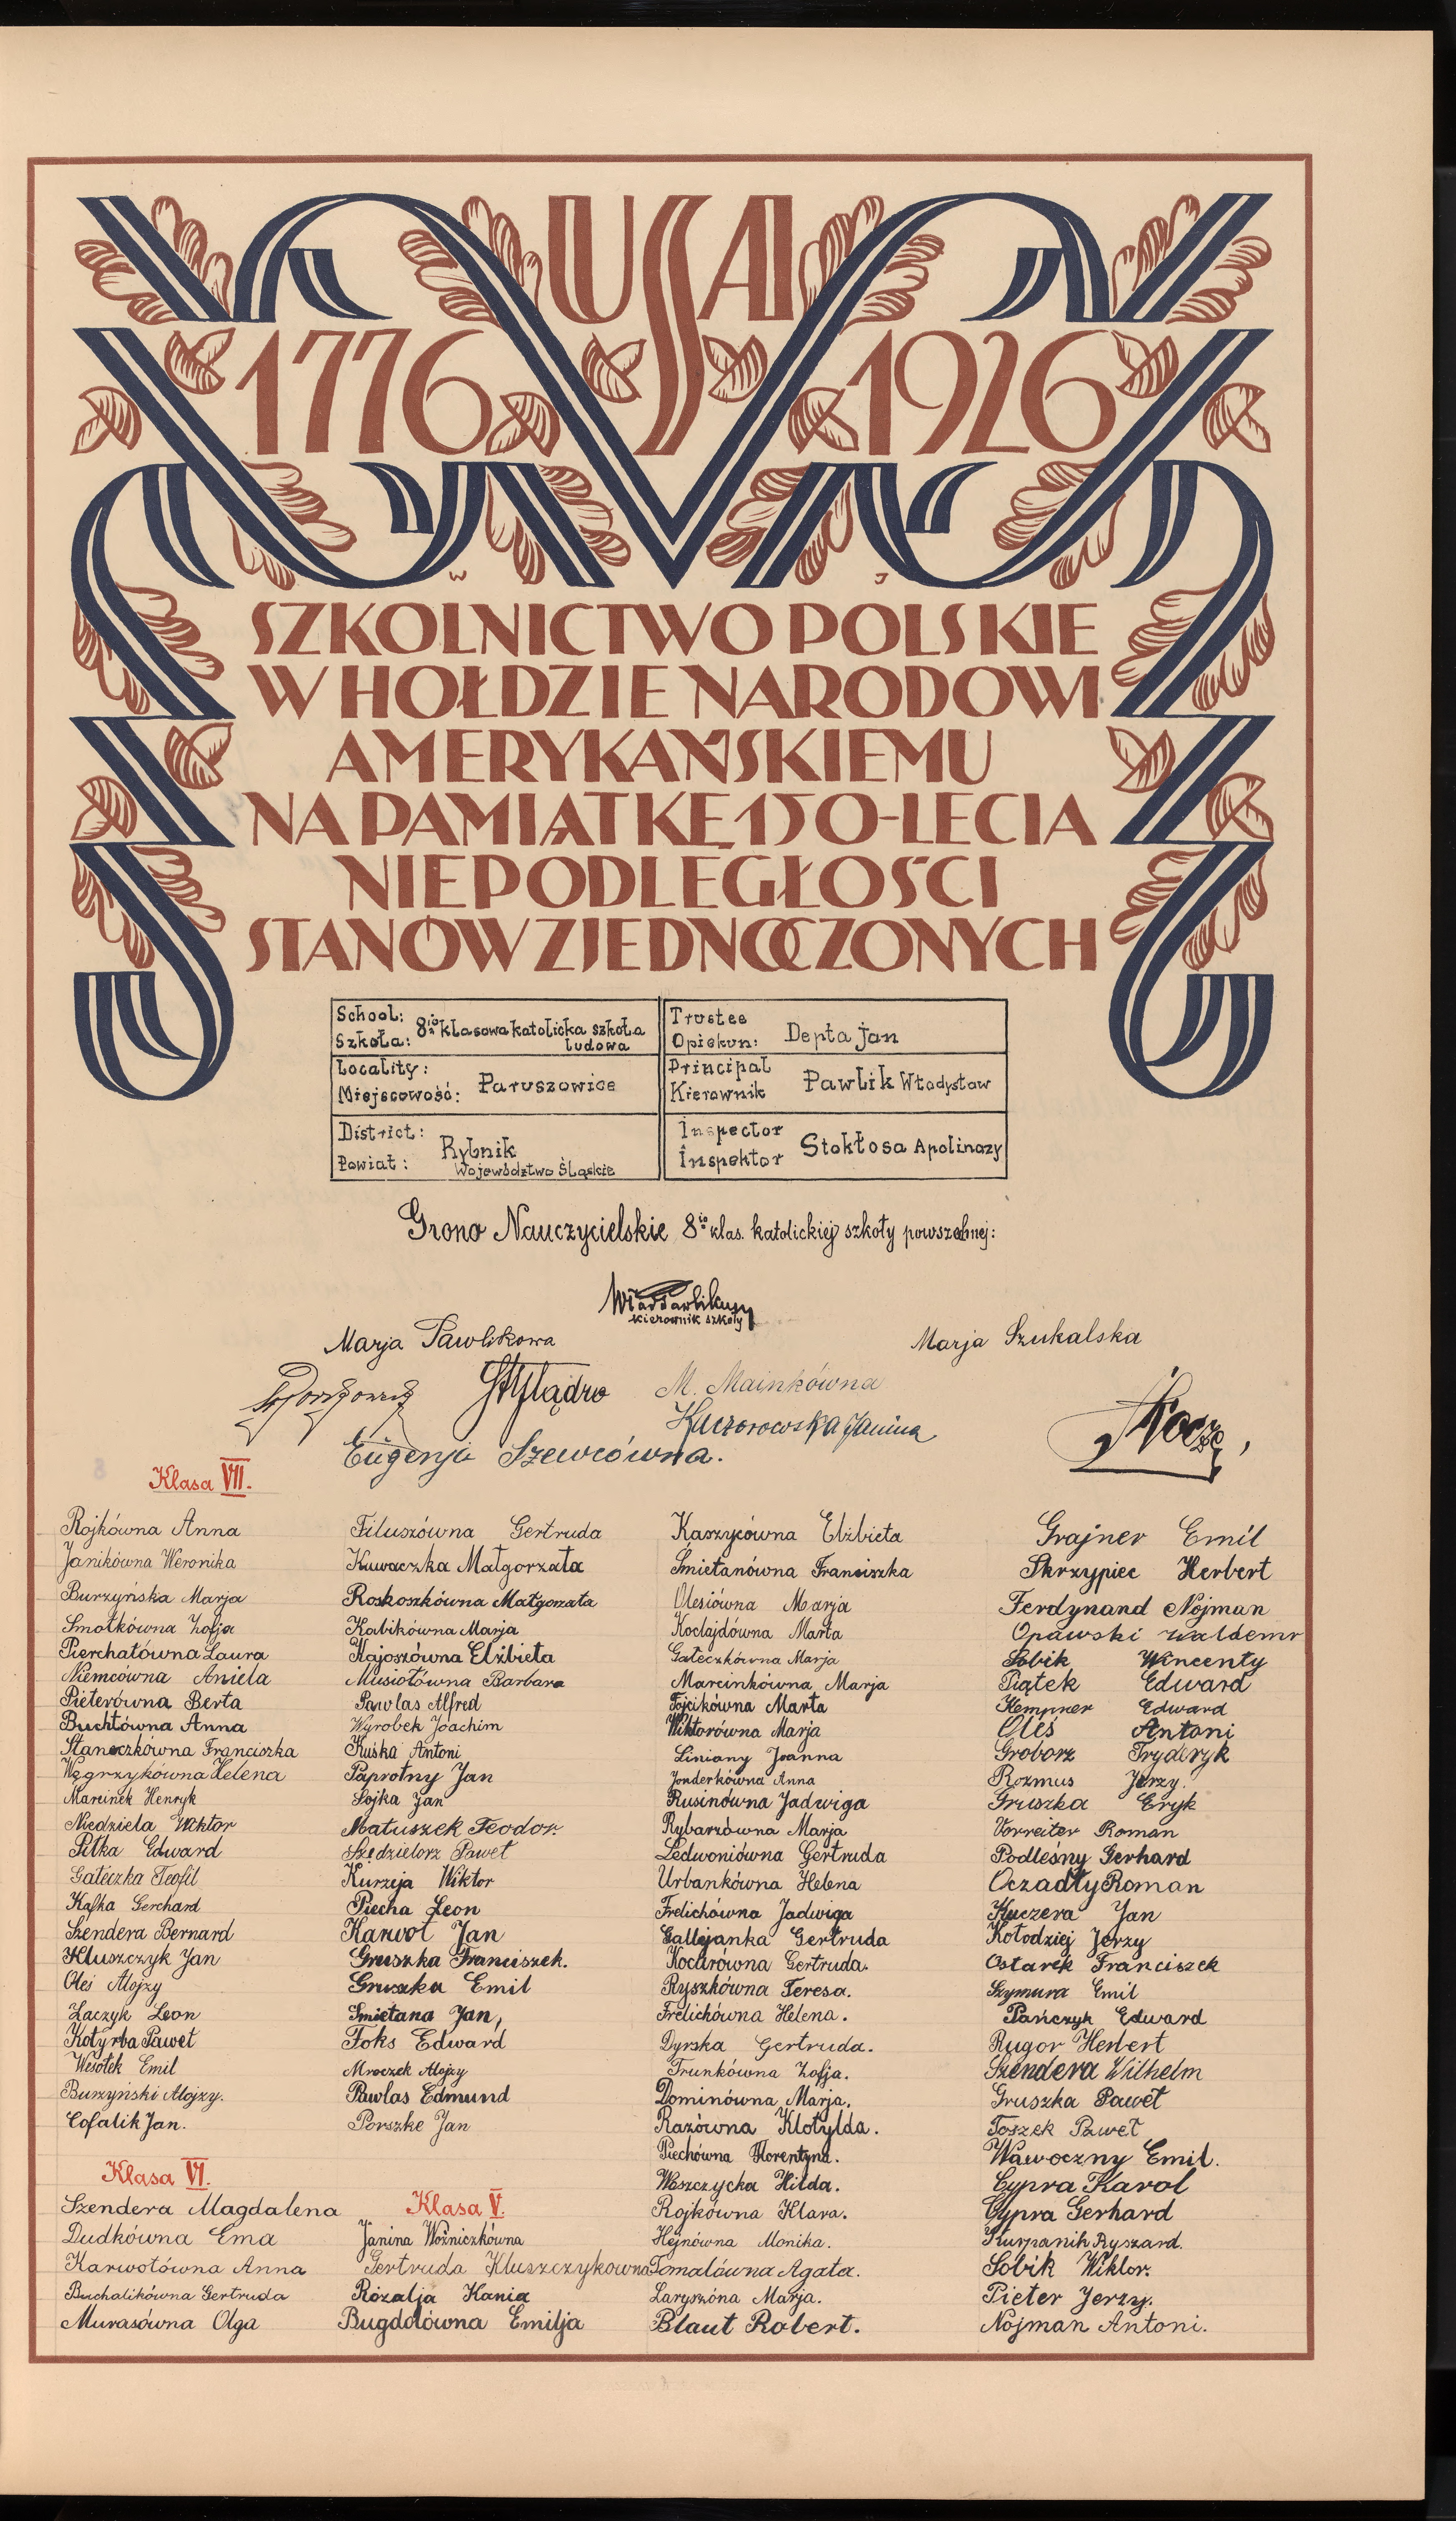 USA
1776 1926
W J
SZKOLNICTWO POLSKIE
W HOŁDZIE NARODOWI
AMERYKAŃSKIEMU
NA PAMIĄTKĘ 150-LECIA
NIEPODLEGŁOŚCI
STANÓW ZJEDNOCZONYCH
School:
Szkoła: 8io klasowa katolicka szkoła
ludowa
Locality:
Miejscowość: Paruszowice
District:
Powiat: Rybnik
Województwo Śląskie
Trustee
Opiekun: Depta Jan
Principal
Kierownik Pawlik Władysław
Inspector
Inspektor Stokłosa Apolinazy
Grono Nauczycielskie 8io klas. katolickiej szkoły powszechnej:
kierownik szkoły
Marja Pawlikowa
Marja Szukalska
M. Mainkówna
Kaczorowska Janina
Eugenja Szewcówna.
Klasa VII.
Rojkówna Anna
Janikówna Weronika
Burzyńska Marja
Smołkówna Zofja
Pierchałówna Laura
Niemcówna Aniela
Pieterówna Berta
Buchtówna Anna
Staneczkówna Franciszka
Węgrzykówna Helena
Marcinek Henryk
Niedziela Wiktor
Pitka Edward
Gałeczka Teofil
Kafka Gerchard
Szendera Bernard
Kluszczyk Jan
Oleś Alojzy
Łaczyk Leon
Kotyrba Paweł
Wesołek Emil
Burzyński Alojzy.
Cofalik Jan.
Klasa VI.
Szendera Magdalena
Dudkówna Ema
Karwotówna Anna
Buchalikówna Gertruda
Murasówna Olga
Filuszówna Gertruda
Kuwaczka Małgorzata
Roskoszkówna Małgorzata
Kabikówna Marja
Kajoszówna Elżbieta
Musiołówna Barbara
Pawlas Alfred
Wyrobek Joachim
Kuśka Antoni
Paprotny Jan
Sojka Jan
Matuszek Teodor.
Szędzielorz Paweł
Kurzeja Wiktor
Piecha Leon
Karwot Jan
Gruszka Franciszek.
Gruszka Emil
Śmietana Jan,
Foks Edward
Mroczek Alojzy
Pawlas Edmund
Porszke Jan
Klasa V.
Janina Woźniczkówna
Gertruda Kluszczykowna
Rozalja Kania
Bugdolówna Emilja
Kaszycówna Elżbieta
Śmietanówna Franciszka
Olesiówna Marja
Koclajdówna Marta
Gałeczkówna Marja
Marcinkówna Marja
Fojcikówna Marta
Wiktorówna Marja
Liniany Joanna
Jonderkówna Anna
Rusinówna Jadwiga
Rybarzówna Marja
Ledwoniówna Gertruda
Urbankówna Helena
Frelichówna Jadwiga
Gallejanka Gertruda
Kocurówna Gertruda.
Ryszkówna Teresa.
Frelichówna Helena.
Dyrska Gertruda.
Trunkówna Zofja.
Dominówna Marja.
Razówna Klotylda.
Piechówna Florentyna.
Waszczycka Hilda.
Rojkówna Klara.
Hejnówna Monika.
Tomalówna Agata.
Laryszóna Marja.
Blaut Robert.
Grajner Emil
Skrzypiec Herbert
Ferdynand Nojman
Opawski Waldemr
Sobik Wincenty
Piątek Edward
Kempner Edward
Oleś Antoni
Groborz Fryderyk
Rozmus Jerzy.
Gruszka Eryk
Vorreiter Roman
Podleśny Gerhard
Oczadły Roman
Kuczera Jan
Kołodziej Jerzy
Ostarek Franciszek
Szymura Emil
Pańczyk Edward
Rugor Herbert
Szendera Wilhelm
Gruszka Paweł
Toszek Paweł
Wawoczny Emil.
Cypra Karol
Cypra Gerhard
Kurpanik Ryszard.
Sobik Wiktor.
Pieter Jerzy.
Nojman Antoni.